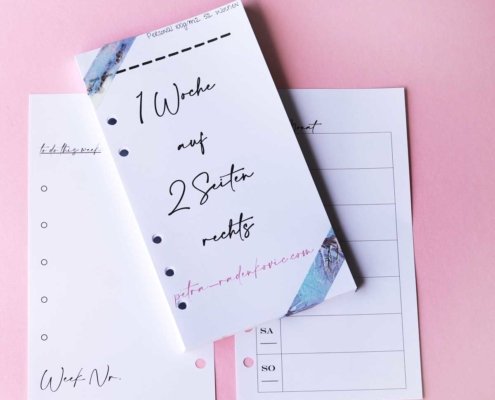 Personal 100g/m2 52 Wochen
1 Woche
auf
2 Seiten
rechts
petra-radenkovic.com
to do this week
Week No.
SA
SO